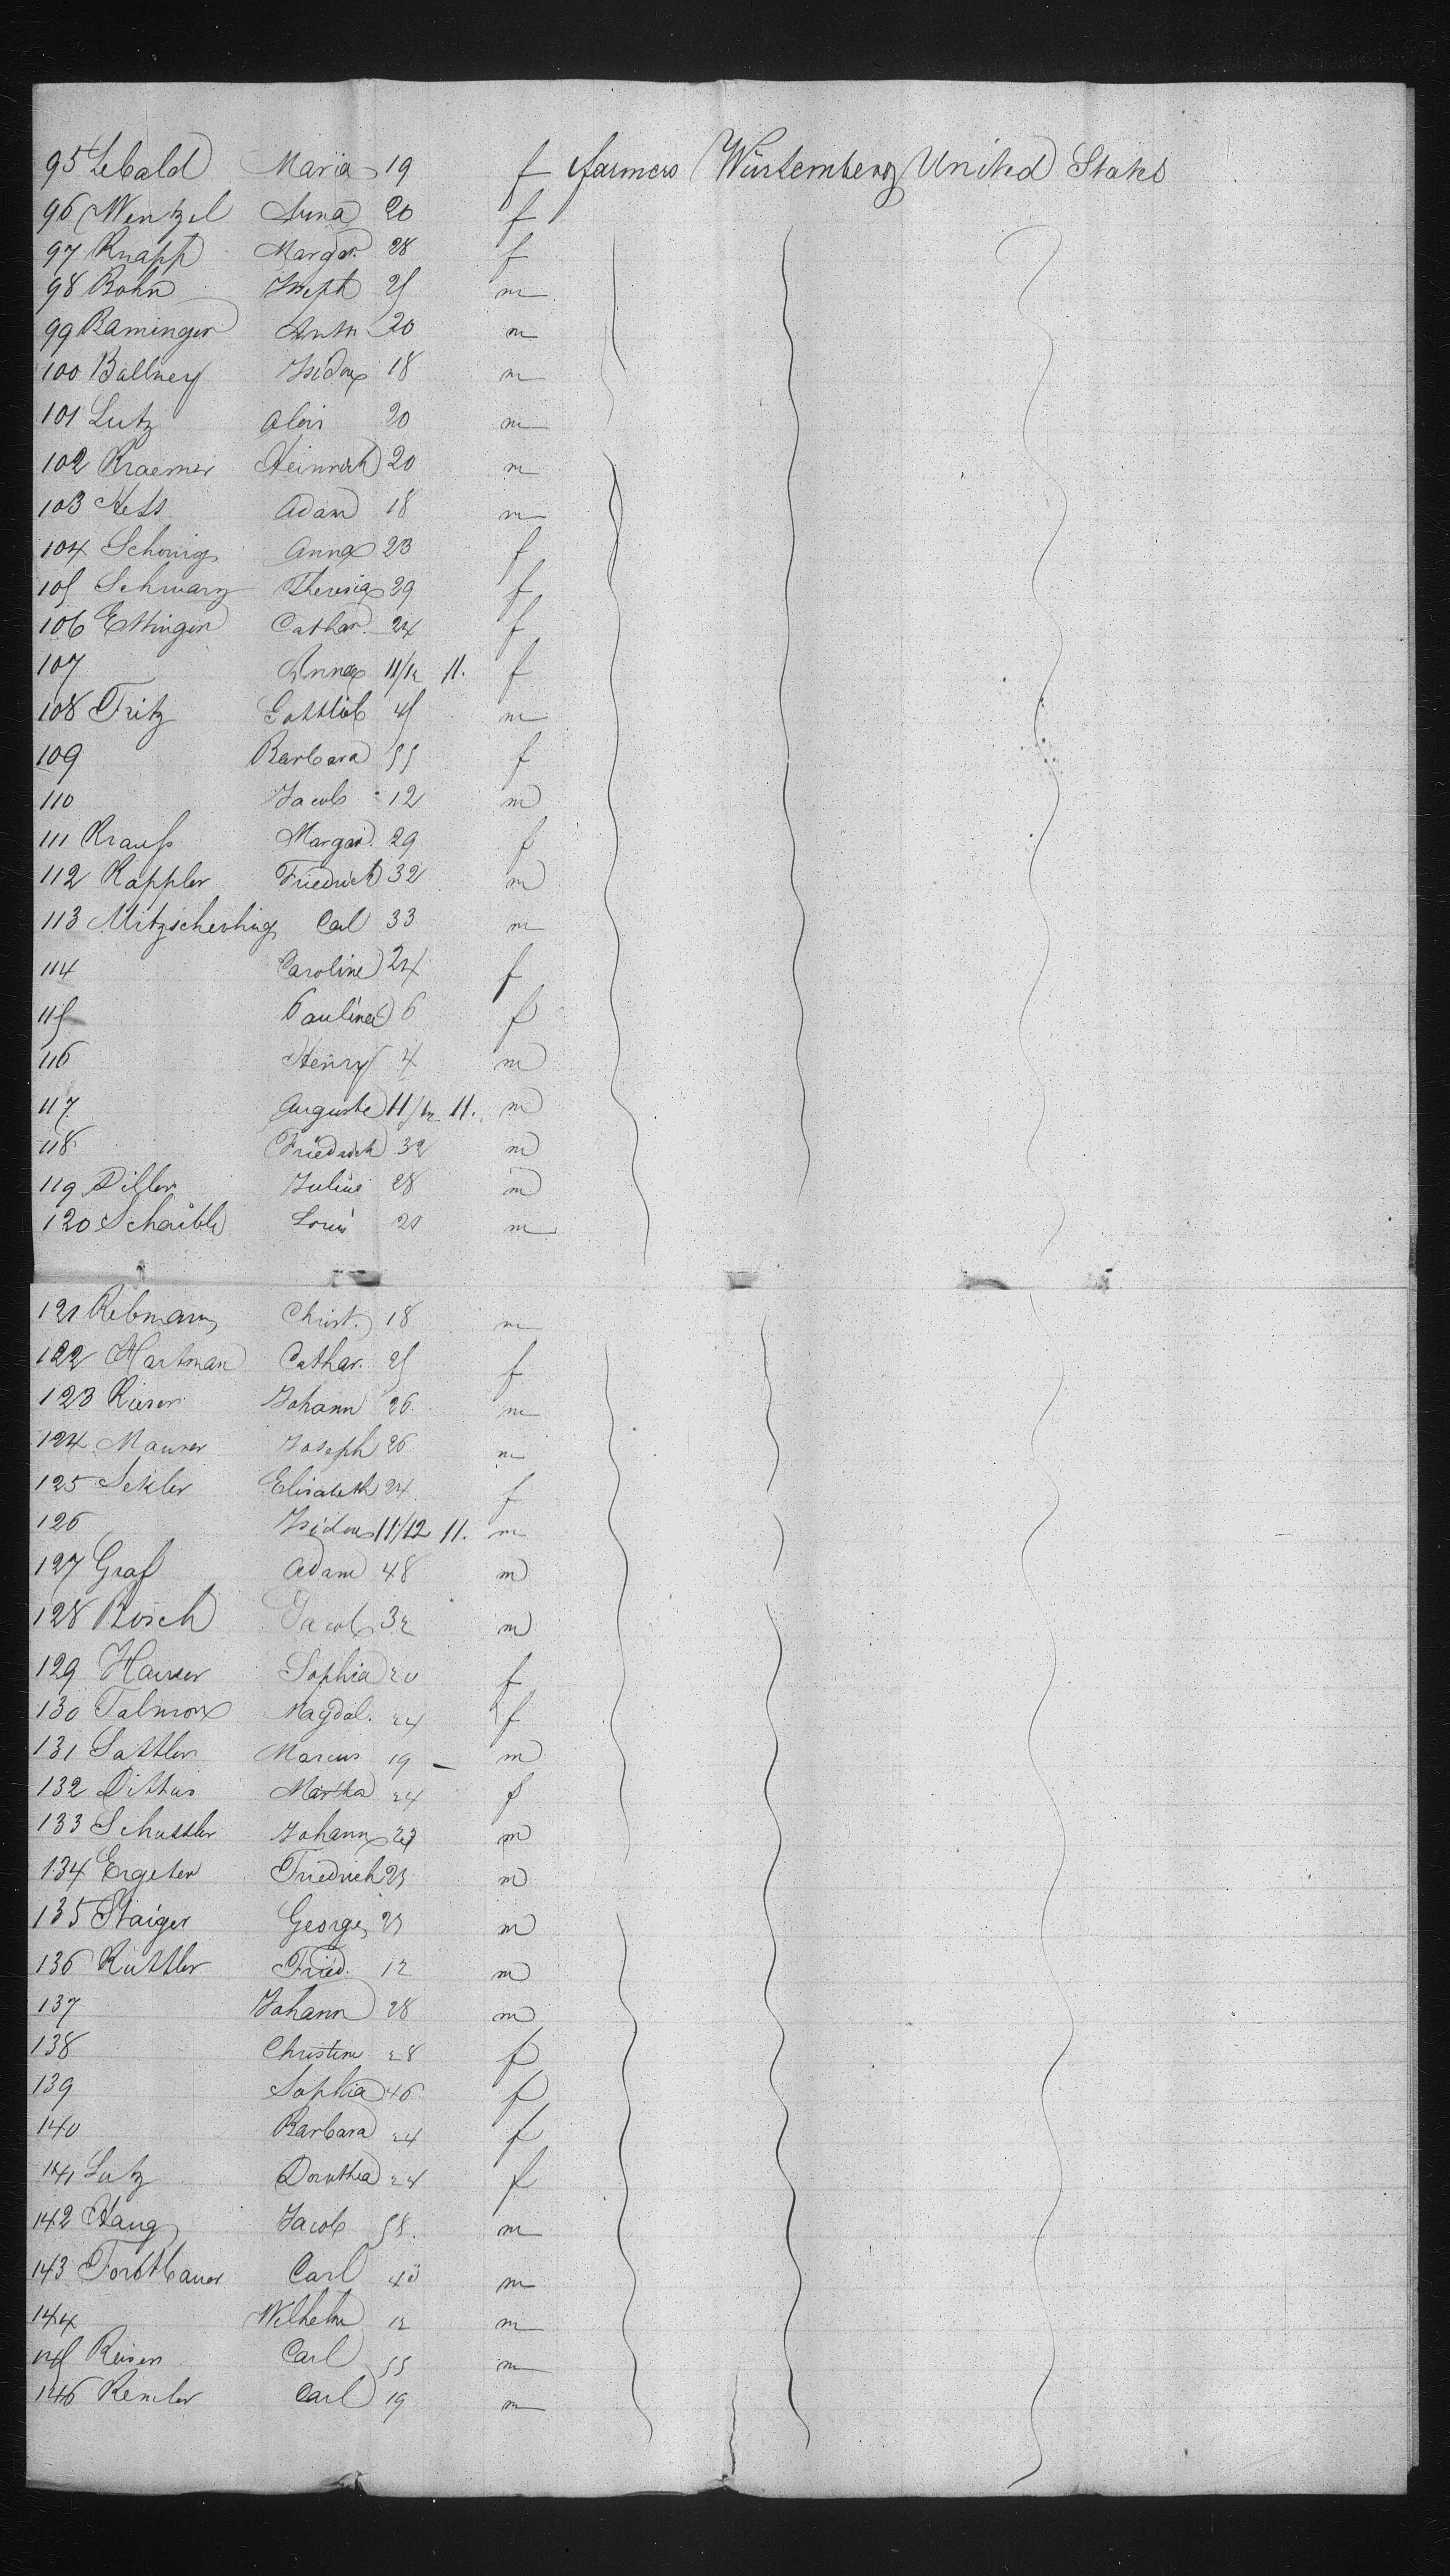 95 Lebald Maria 19 f farmers Würtemberg United States
96 Wentzel Anna 20 f
97 Knapp Margar. 28 f
98 Bohn Joseph 25 m
99 Baminger Anton 20 m
100 Ballney Isidor 18 m
101 Lutz Alois 20 m
102 Kraemer Heinrich 20 m
103 Hess Adam 18 m
104 Schonig Anna 23 f
105 Schwarz Theresia 29 f
106 Ettinger Cathar. 24 f
107 Anna 11/12 11. f
108 Fritz Gottlieb 45 m
109 Barbara 55 f
110 Jacob 12 m
111 Krauß Margar. 29 f
112 Kappler Friedrich 32 m
113 Mitzscherling Carl 33 m
114 Caroline 24 f
115 Pauline 6 f
116 Henry 4 m
117 Auguste 11/12 11. m
118 Friedrich 32 m
119 Diller Julius 28 m
120 Schaible Louis 20 m
121 Rebmann Christ. 18 m
122 Hartman Cathar. 25 f
123 Rieser Johann 26 m
124 Maurer Joseph 26 m
125 Sekler Elisabeth 24 f
126 Isidor 11/12 11. m
127 Graf Adam 48 m
128 Bosch Jacob 32 m
129 Hauser Sophia 20 f
130 Talmon Magdal. 24 f
131 Sattler Marcus 19 — m
132 Dittus Martha 24 f
133 Schuttler Johann m
134 Ergeter Friedrich 25 m
135 Staiger George 25 m
136 Ruttler Fried. 12 m
137 Johann 28 m
138 Christine 28 f
139 Sophia 46 f
140 Barbara 24 f
141 Lutz Dorothea 24 f
142 Haug Jacob 58. m
143 Forstbauer Carl 43 m
144 Wilhelm 12 m
145 Reiser Carl 55 m
146 Kemler Carl 19 m